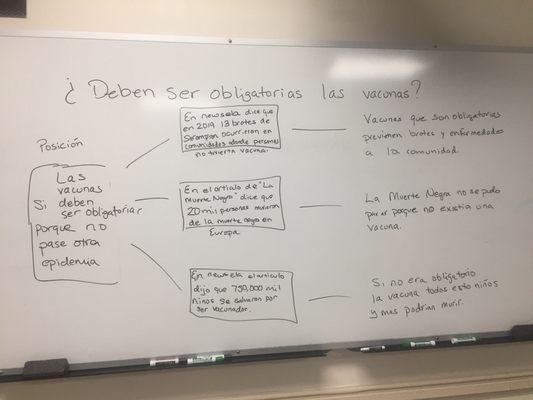 ¿Deben ser obligatorias las vacunas?
Posición
Las
vacunas
Si deben
ser obligatoriar
porque no
pase otra
epidemia
En newsela dice que
en 2019 13 brotes de
Sarampion ocurrieron en
comunidades adonde personas
no tuvieron vacuna.
Vacunas que son obligatorias
previenen brotes y enfermedades
a la comunidad.
En el articulo de "La
Muerte Negra" dice que
20 mil personas murieron
de la muerte negra en
Europa
La Muerte Negra no se pudo
parar porque no existia una
vacuna.
En newsela el articulo
dijo que 750,000 mil
niños se salvaron por
ser vacunados.
Si no era obligatorio
la vacuna todos esto niños
y mas podrian murir.